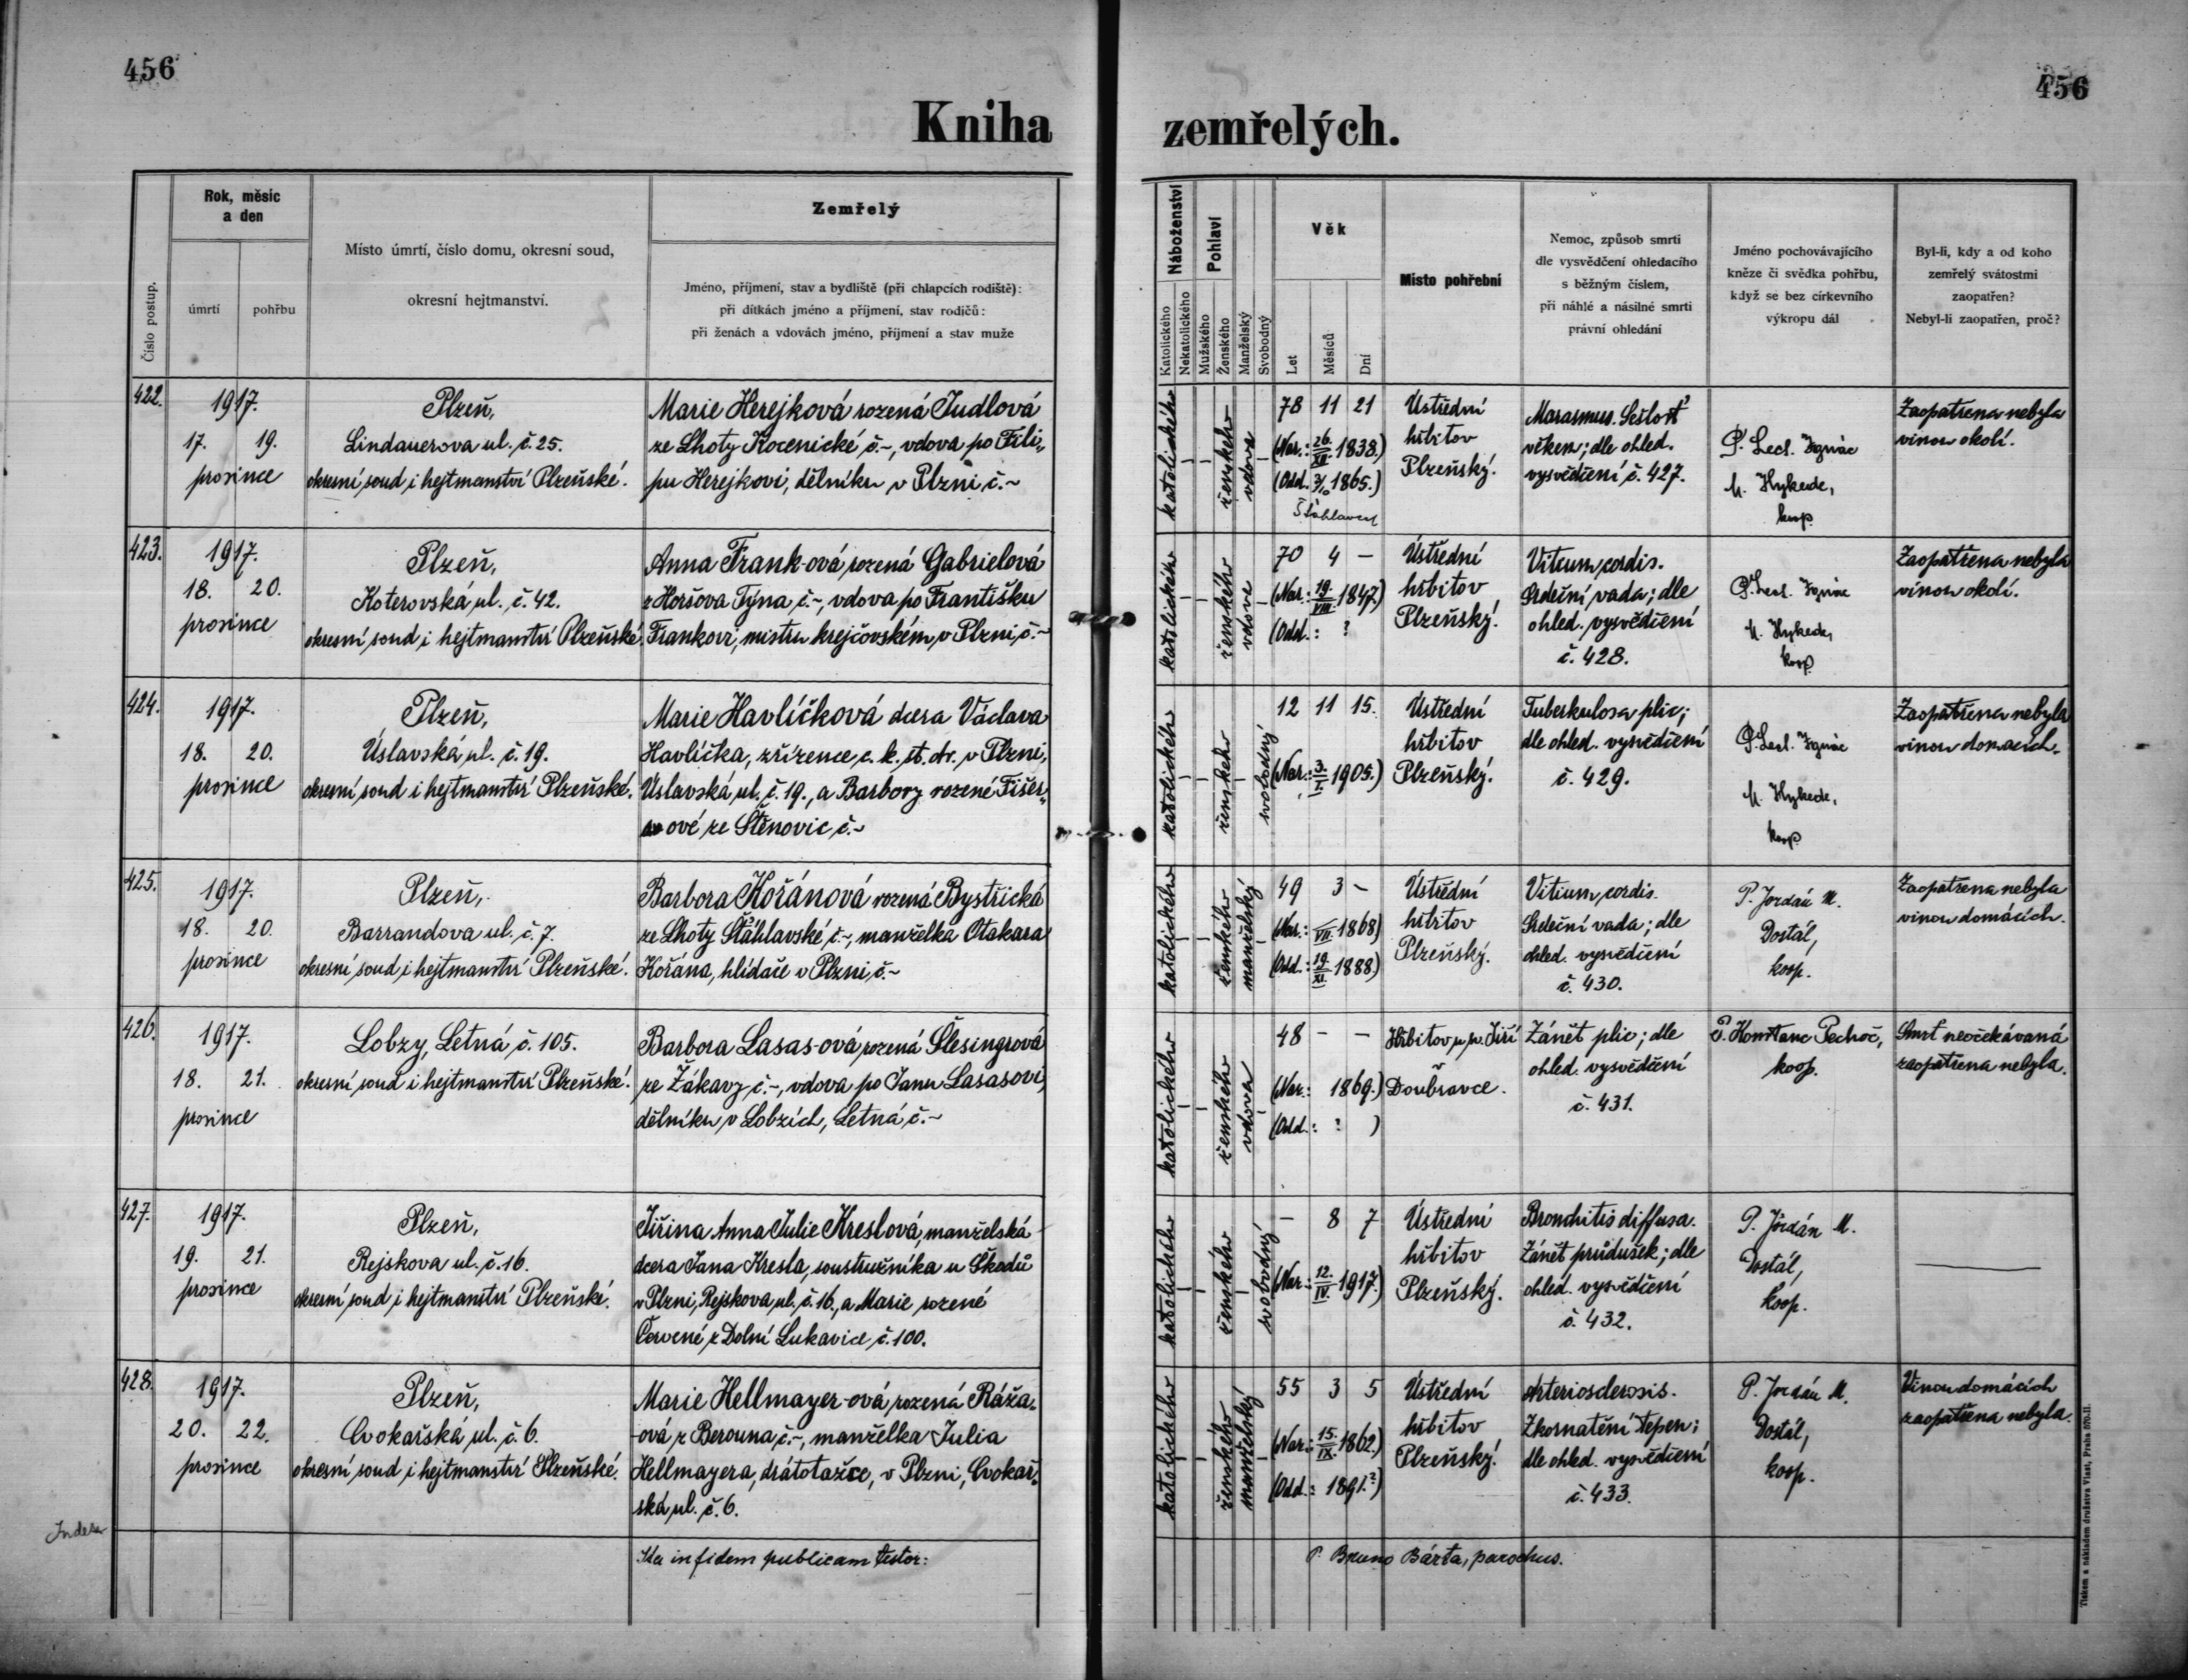 456
456
Kniha zemřelých.
Číslo postup.
Rok, měsíc
a den
úmrtí
pohřbu
Místo úmrtí, číslo domu, okresní soud,
okresní hejtmanství.
Zemřelý
Jméno, příjmení, stav a bydliště (při chlapcích rodiště):
při dítkách jméno a příjmení, stav rodičů:
při ženách a vdovách jméno, příjmení a stav muže
Náboženství
Katolického
Nekatolického
Pohlaví
Mužského
Ženského
Manželský
Svobodný
Věk
Let
Měsíců
Dní
Místo pohřební
Nemoc, způsob smrti
dle vysvědčení ohledacího
s běžným číslem,
při náhlé a násilné smrti
právní ohledání
Jméno pochovávajícího
kněze či svědka pohřbu,
když se bez církevního
výkropu dál
Byl-li, kdy a od koho
zemřelý svátostmi
zaopatřen?
Nebyl-li zaopatřen, proč?
422.
1917.
17. 19.
prosince
Plzeň,
Lindauerova ul. č. 25.
okresní soud i hejtmanství Plzeňské.
Marie Herejková rozená Judlová
ze Lhoty Kocenické č.~, vdova po Fili„
pu Herejkovi, dělníku v Plzni č.~
katolického
ženského
vdova
78 11 21
(Nar.: 26./XII. 1838.)
(Odd. 3/10 1865.)
Šťáhlavy
Ústřední
hřbitov
Plzeňský.
Marasmus. Sešlosť
věkem; dle ohled.
vysvědčení č. 427.
P. Lecl. Ignác
M. Hykede,
koop
Zaopatřena nebyla
vinou okolí.
423.
1917.
18. 20.
prosince
Plzeň,
Koterovská ul. č. 42.
okresní soud i hejtmanství Plzeňské.
Anna Frank-ová rozená Gabrielová
z Horšova Týna č.~, vdova po Františku
Frankovi, mistru krejčovském v Plzni, č.~
katolického
ženského
vdova
70 4 –
(Nar.: 19./VIII. 1847.)
(Odd.: ?
Ústřední
hřbitov
Plzeňský.
Vitium cordis.
Srdeční vada; dle
ohled. vysvědčení
č. 428.
P. Lecl. Ignác
M. Hykede,
koop
Zaopatřena nebyla
vinou okolí.
424.
1917.
18. 20.
prosince
Plzeň,
Úslavská ul. č. 19.
okresní soud i hejtmanství Plzeňské.
Marie Havlíčková dcera Václava
Havlíčka, zřízence c. k. st. dr. v Plzni,
Úslavská ul. č. 19., a Barbory rozené Fišer„
ové ze Štěnovic č.~
katolického
ženského
svobodný
12 11 15.
(Nar.: 3./I. 1905.)
Ústřední
hřbitov
Plzeňský.
Tuberkulosa plic;
dle ohled. vysvědčení
č. 429.
P. Lecl. Ignác
M. Hykede,
koop
Zaopatřena nebyla
vinou domácích.
425.
1917.
18. 20.
prosince
Plzeň,
Barrandova ul. č. 7.
okresní soud i hejtmanství Plzeňské.
Barbora Kořánová rozená Bystřická
ze Lhoty Šťáhlavské, č.~, manželka Otakara
Kořána, hlídače v Plzni, č.~
katolického
ženského
manželský
49 3 –
(Nar.: VII. 1868)
(Odd.: 19./XI. 1888.)
Ústřední
hřbitov
Plzeňský.
Vitium cordis.
Srdeční vada; dle
ohled. vysvědčení
č. 430.
P. Jordán M.
Dostál,
koop.
Zaopatřena nebyla
vinou domácích.
426.
1917.
18. 21.
prosince
Lobzy, Letná č. 105.
okresní soud i hejtmanství Plzeňské.
Barbora Lasas-ová rozená Šlesingrová
ze Žákavy č.~, vdova po Janu Lasasovi,
dělníku v Lobzích, Letná č.~
katolického
ženského
vdova
48 – –
(Nar.: 1869.)
(Odd.: ? )
Hřbitov u sv. Jiří
v
Doubravce.
Zánět plic; dle
ohled. vysvědčení
č. 431.
P. Konstanc Pechoč,
koop.
Smrť neočekávaná
zaopatřena nebyla.
427.
1917.
19. 21.
prosince
Plzeň,
Rejskova ul. č. 16.
okresní soud i hejtmanství Plzeňské.
Jiřina Anna Julie Kreslová, manželská
dcera Jana Kresla, soustružníka u Škodů
v Plzni, Rejskova ul. č. 16., a Marie rozené
Červené z Dolní Lukavice č. 100.
katolického
ženského
svobodný
– 8 7
(Nar.: 12./IV. 1917.)
Ústřední
hřbitov
Plzeňský.
Bronchitis diffusa.
Zánět průdušek; dle
ohled. vysvědčení
č. 432.
P. Jordán M.
Dostál,
koop.
428.
1917.
20. 22.
prosince
Plzeň,
Cvokařská ul. č. 6.
okresní soud i hejtmanství Plzeňské.
Marie Hellmayer-ová, rozená Ráža„
ová z Berouna č.~, manželka Julia
Hellmayera, drátotažce, v Plzni, Cvokař„
ská ul. č. 6.
katolického
ženského
manželský
55 3 5
(Nar.: 15./IX. 1862.)
(Odd.: 1891.?)
Ústřední
hřbitov
Plzeňský.
Arteriosclerosis.
Zkornatění tepen;
dle ohled. vysvědčení
č. 433.
P. Jordán M.
Dostál,
koop.
Vinou domácích
zaopatřena nebyla.
Ita in fidem publicam testor:
P. Bruno Bárta, parochus.
Tiskem a nákladem družstva Vlast, Praha 570-II.